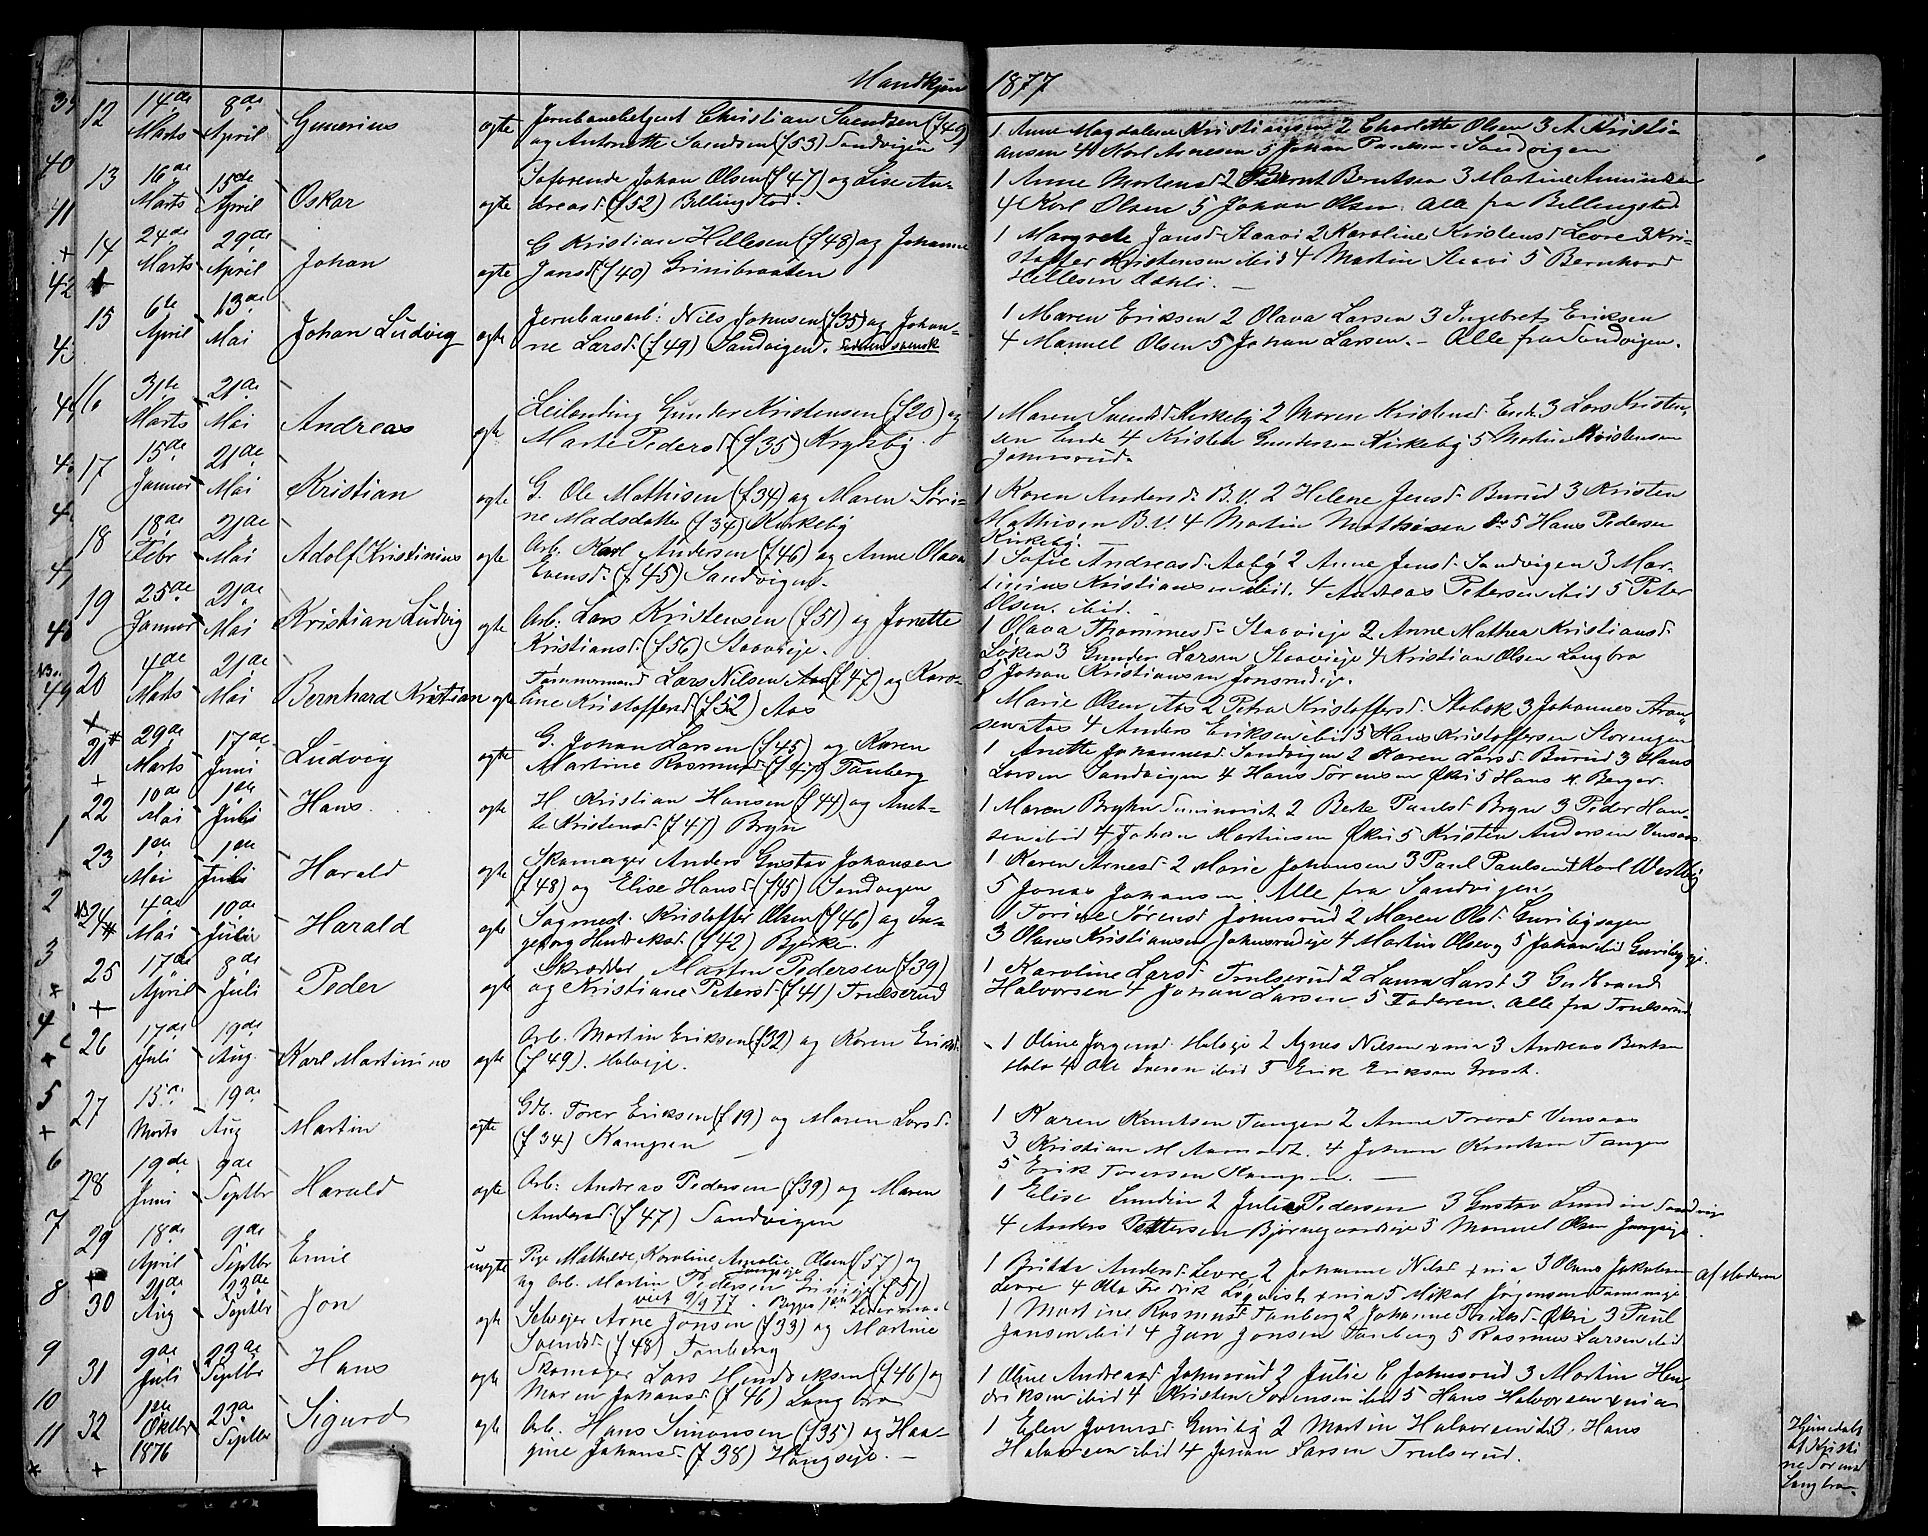 Mandkjøn 1877
12 14de Marts 8de April Gunerius ægte Jernbanebetjent Christian Svendsen (f 49)
og Antonette Svendsen (f 53) Sandvigen
1 Anne Magdalene Kristiansen 2 Charlotte Olsen 3 A Kristi-
ansen 4 Karl Arnesen 5 Johan Paulsen Sandvigen
13 16de Marts 15de April Oskar ægte Søfarende Johan Olsen (f 47) og Lise An-
dreasd. (f 52) Billingstad.
1 Anne Mortensd 2 Bernt Berntsen 3 Martine Amundsen
4 Karl Olsen 5 Johan Olsen. Alle fra Billingstad
14 24de Marts 29de April Johan ægte G Kristian Hillesen (f 48) og Johanne
Jansd. (f 40) Grinibraaten
1 Margrete Jansd. Staavi 2 Karoline Kristensd Levre 3 Kri-
stoffer Kristensen ibid 4 Martin Staavi 5 Bernhard
Hillesen Dahli. —
15 6te April 13de Mai Johan Ludvig ægte Jernbanearb: Nils Johnsen (f 35) og Johan-
ne Larsd. (f 49) Sandvigen. Faderen svensk
1 Maren Eriksen 2 Olava Larsen 3 Ingebret Eriksen
4 Manuel Olsen 5 Johan Larsen. — Alle fra Sandvigen.
16 31te Marts 21de Mai Andreas ægte Leilending Gunder Kristensen (f 20) og
Marte Pedersd. (f 35) Kirkeby
1 Maren Svendsd. Kirkeby 2 Maren Kristensd. Ende 3 Lars Kristen-
sen Ende 4 Kristen Gundersen Kirkeby 5 Martin Kristensen
Johnsrud.
17 15de Januar 21de Mai Kristian ægte G. Ole Mathisen (f 34) og Maren Søri-
ne Madsdatter (f 34) Kirkeby
1 Karen Andersd. B.V. 2 Helene Jensd. Burud 3 Kristen
Mathisen B.V. 4 Martin Mathisen 5 Hans Pedersen
Kirkeby.
18 18de Febr 21de Mai Adolf Kristinius ægte Arb. Karl Andersen (f 46) og Anne Olava
Evensd. (f 45) Sandvigen.
1 Sofie Andreasd. Aaby 2 Anne Jensd. Sandvigen 3 Mar-
tinius Kristiansen ibid. 4 Andreas Petersen ibid 5 Peter
Olsen. ibid.
19 25de Januar 21de Mai Kristian Ludvig ægte Arb: Lars Kristensen (f 51) og Jonette
Kristiansd. (f 56) Staavieje.
1 Olava Thommesd. Staavieje 2 Anne Mathea Kristiansd.
Løken 3 Gunder Larsen Staavieje 4 Kristian Olsen Langbra
5 Johan Kristiansen Jonsrudeje.
20 4de Marts 21de Mai Bernhard Kristian ægte Tømmermand Lars Nilsen Aas (f 47) og Karo-
line Kristoffersd (f 52) Aas
1 Marie Olsen Aas 2 Petra Kristoffersd. Stabæk 3 Johannes Aron-
sen Aas 4 Anders Eriksen ibid 5 Hans Kristoffersen Storengen
21 29de Marts 17de Juni Ludvig ægte G. Johan Larsen (f 45) og Karen
Martine Rasmusd. (f 41) Tanberg
1 Anette Johannesd. Sandvigen 2 Karen Larsd. Burud 3 Hans
Larsen Sandvigen 4 Hans Sørensen Økri 5 Hans H. Berger.
22 10de Mai 1ste Juli Hans ægte H. Kristian Hansen (f 44) og Anet-
te Kristensd. (f 47) Bryn
1 Maren Bryhn Seminarist 2 Berte Paulsd. Bryn 3 Peder Han-
sen ibid 4 Johan Martinsen Økri 5 Kristen Andersen Vensaas
23 1ste Mai 1ste Juli Harald ægte Skomager Anders Gustav Johansen
(f 48) og Elise Hansd. (f 45) Sandvigen
1 Karen Arnesd. 2 Marie Johansen 3 Paul Paulsen 4 Karl Westbye
5 Jonas Johansen. Alle fra Sandvigen
24 4de Mai 10de Juli Harald ægte Sagmest. Kristoffer Olsen (f 46) og In-
geborg Hendriksd. (f 42) Bjerke.
1 Torine Sørensd Johnsrud 2 Maren Olsd. Gunibysagen
3 Olaus Kristiansen Johnsrudeje 4 Martin Olsen og 5 Johan ibid Gunibyeje.
25 17de April 8de Juli Peder ægte Skrædder Martin Pedersen (f 39)
og Kristiane Petersd. (f 41) Trulserud
1 Karoline Larsd. Trulserud 2 Laura Larsd 3 Gulbrand
Halvorsen 4 Johan Larsen 5 Faderen. alle fra Trulserud
26 17de Juli 19de Aug. Karl Martinius ægte Arb. Martin Eriksen (f 32) og Karen Eriksd.
(f 49). Haloeje.
1 Oline Jørgensd. Haloeje 2 Agnes Nilsen xnia 3 Andreas Bentsen
Halo 4 Ole Iverson ibid 5 Erik Eriksen
27 15de Marts 19de Aug Martin ægte Gdb. Torer Eriksen (f 19) og Maren Larsd.
(f 34) Kampen —
1 Karen Knudsen Tangen 2 Anne Torersd. Vensaas
3 Kristian M Aamodt. 4 Johan Knudsen Tangen
5 Erik Torersen Kampen. —
28 19de Juni 9de Septbr Harald ægte Arb: Andreas Pedersen (f 39) og Maren
Andersd (f 47) Sandvigen
1 Elise Lundin 2 Julie Pedersen 3 Gustav Lundin Sandvig
4 Anders Pettersen Bjørnegaardseje 5 Manuel Olsen
29 18de April 9de Septbr Emil uægte Pige Mathilde Karoline Amalie Olsen (f 57) og
og Arb. Martin Pedersen Grinieje (f 51)
viet 9/9 77. Begges
1 Britte Andersd. Levre 2 Johanne Nilsd xnia 3 Olaus Jakobsen
Levre 4 Otto Fredrik xnia 5 Mikal Jørgensen
af Moderen
30 21de Aug 23de Septbr Jon ægte Selveier Arne Jonsen (f 33) og Martine
Svendsd. (f 48) Tanberg
1 Martine Rasmusd Tanberg 2 Johanne Økri 3 Paul
Jansen ibid 4 Jan Jonsen Tanberg 5 Rasmus Larsen ibid
31 9de Juli 23de Septbr Hans ægte Skomager Lars Hendriksen (f 46) og
Maren Johansd. (f 46) Langbra
1 Oline Andreasd Johnsrud 2 Julie C Johnsrud 3 Martin Hen-
driksen ibid 4 Kristen Sørensen ibid 5 Hans Halvorsen xnia
32 1ste Oktbr 1876 23de Septbr Sigurd ægte Arb. Hans Simonsen (f 35) og Haa-
gine Johansd. (f 38) Haugseje. —
1 Elen Guniby 2 Martin Halvorsen ibid 3. Hans
Halvorsen ibid 4 Johan Larsen Trulserud.
Hjemedøbt
af Kristi
ne
Langbra